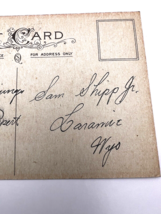 CARD
FOR ADDRESS ONLY
Sam Shipp Jr.
Laramie
Wyo